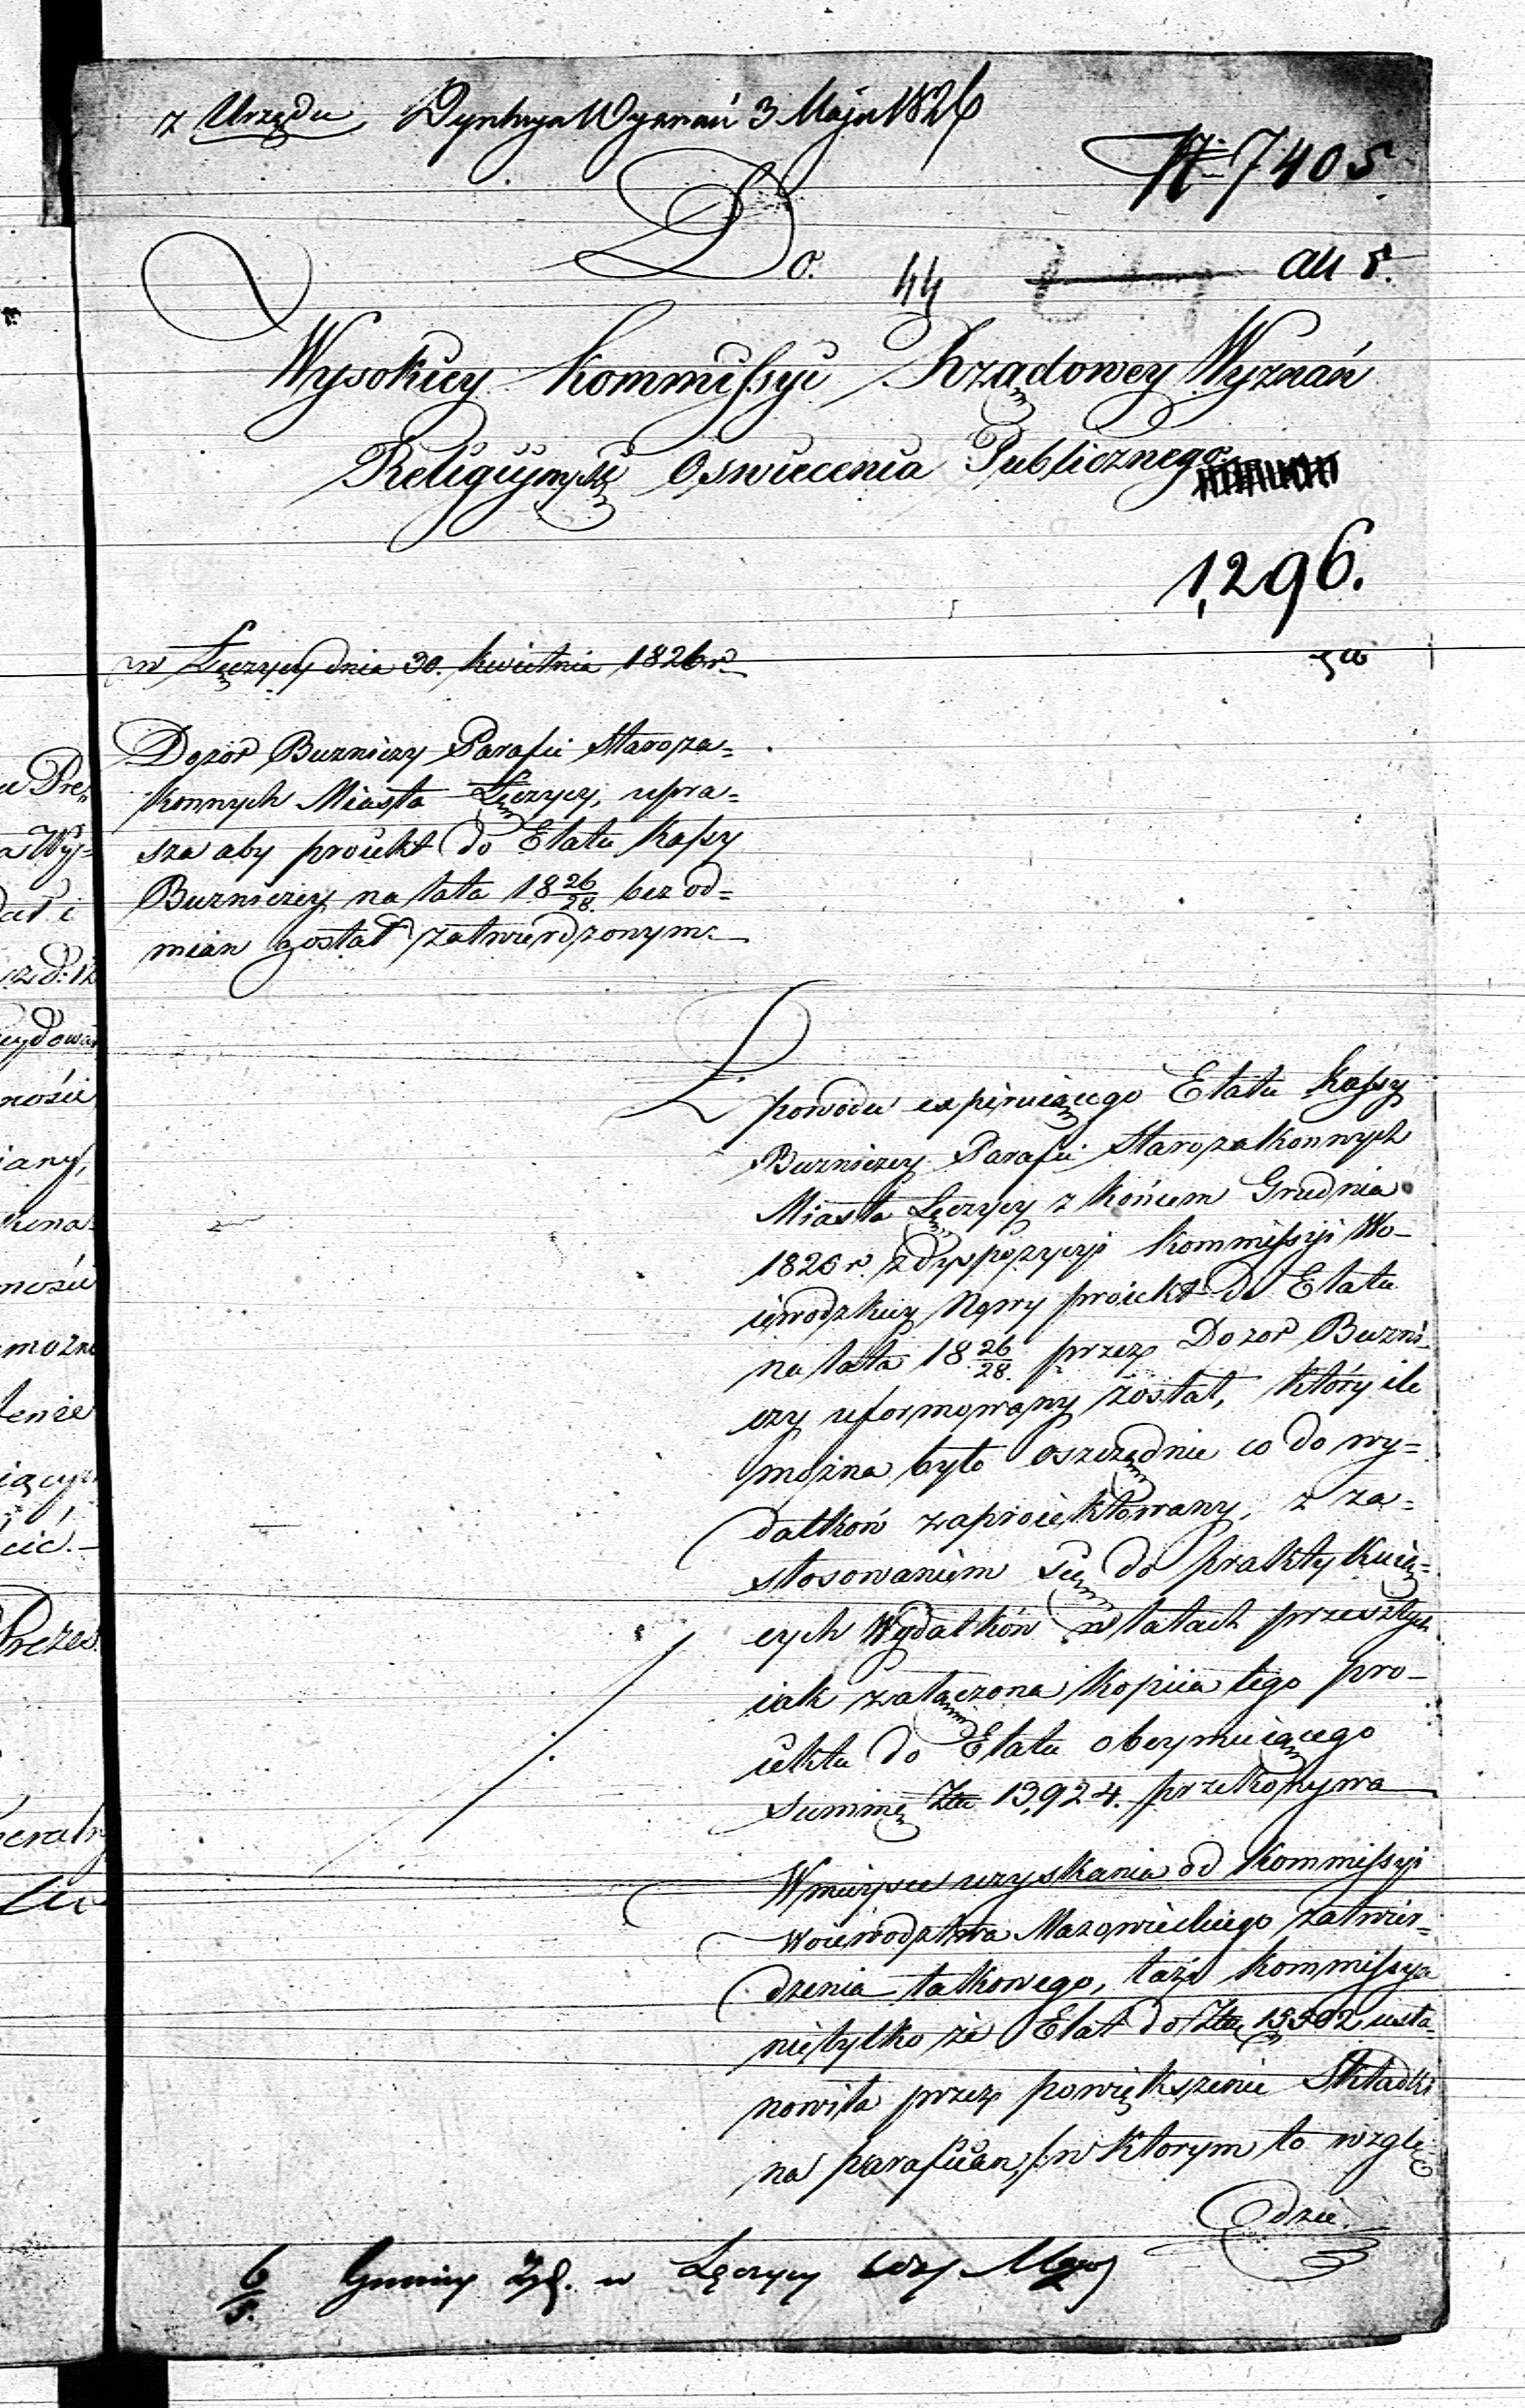 z Urzędu Wyznań 3 Maja 1826
N 7405
Do.
44
all 5.
Wysokiey Kommissyi Rządowey Wyznań
Religiynych Oswiecenia Publicznego
1,296.
w Łęczycy dnia 30. kwietnia 1826 r.
Dozór Bużniczy Parafii Staroza=
konnych Miasta Łęczycy, upra=
sza aby proiekt do Etatu Kassy
Bużniczey na lata 18 26/28. bez od=
mian został zatwierdzonym.
Z powodu expiruiącego Etatu Kassy
Bużniczey Parafii Starozakonnych
Miasta Łęczycy z końcem Grudnia
1826 r. z dyspozycyi Kommissyi Wo-
iewodzkiey Nowy proiekt do Etatu
na lata 18 26/28. przez Dozor Buzni-
czy uformowany został, który ile
można było oszczędnie co do wy=
datków zaproiektowany, z za=
stosowaniem się do praktykuią=
cych Wydatków w latach przeszłych
iak załączona kopiia tego pro-
iektu do Etatu obeymuiącego
Summę Złł 13,924. przekonywa
W mieysce uzyskania od Kommissyi
Woiewodztwa Mazowieckiego zatwier-
dzenia takowego, taż Kommissya
nietylko że Etat do Złł 15502 usta-
nowiła przez powiększenie Składki
na parafiian, w którym to wzglę-
dzie.
6/5. Gminy Żyd. w Łęczycy